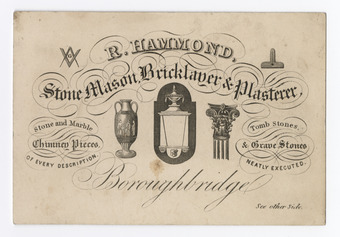 R. HAMMOND,
Stone Mason Bricklayer & Plasterer,
Stone and Marble
Chimney Pieces
OF EVERY DESCRIPTION.
Tomb Stones,
& Grave Stones
NEATLY EXECUTED.
Boroughbridge
See other Side.